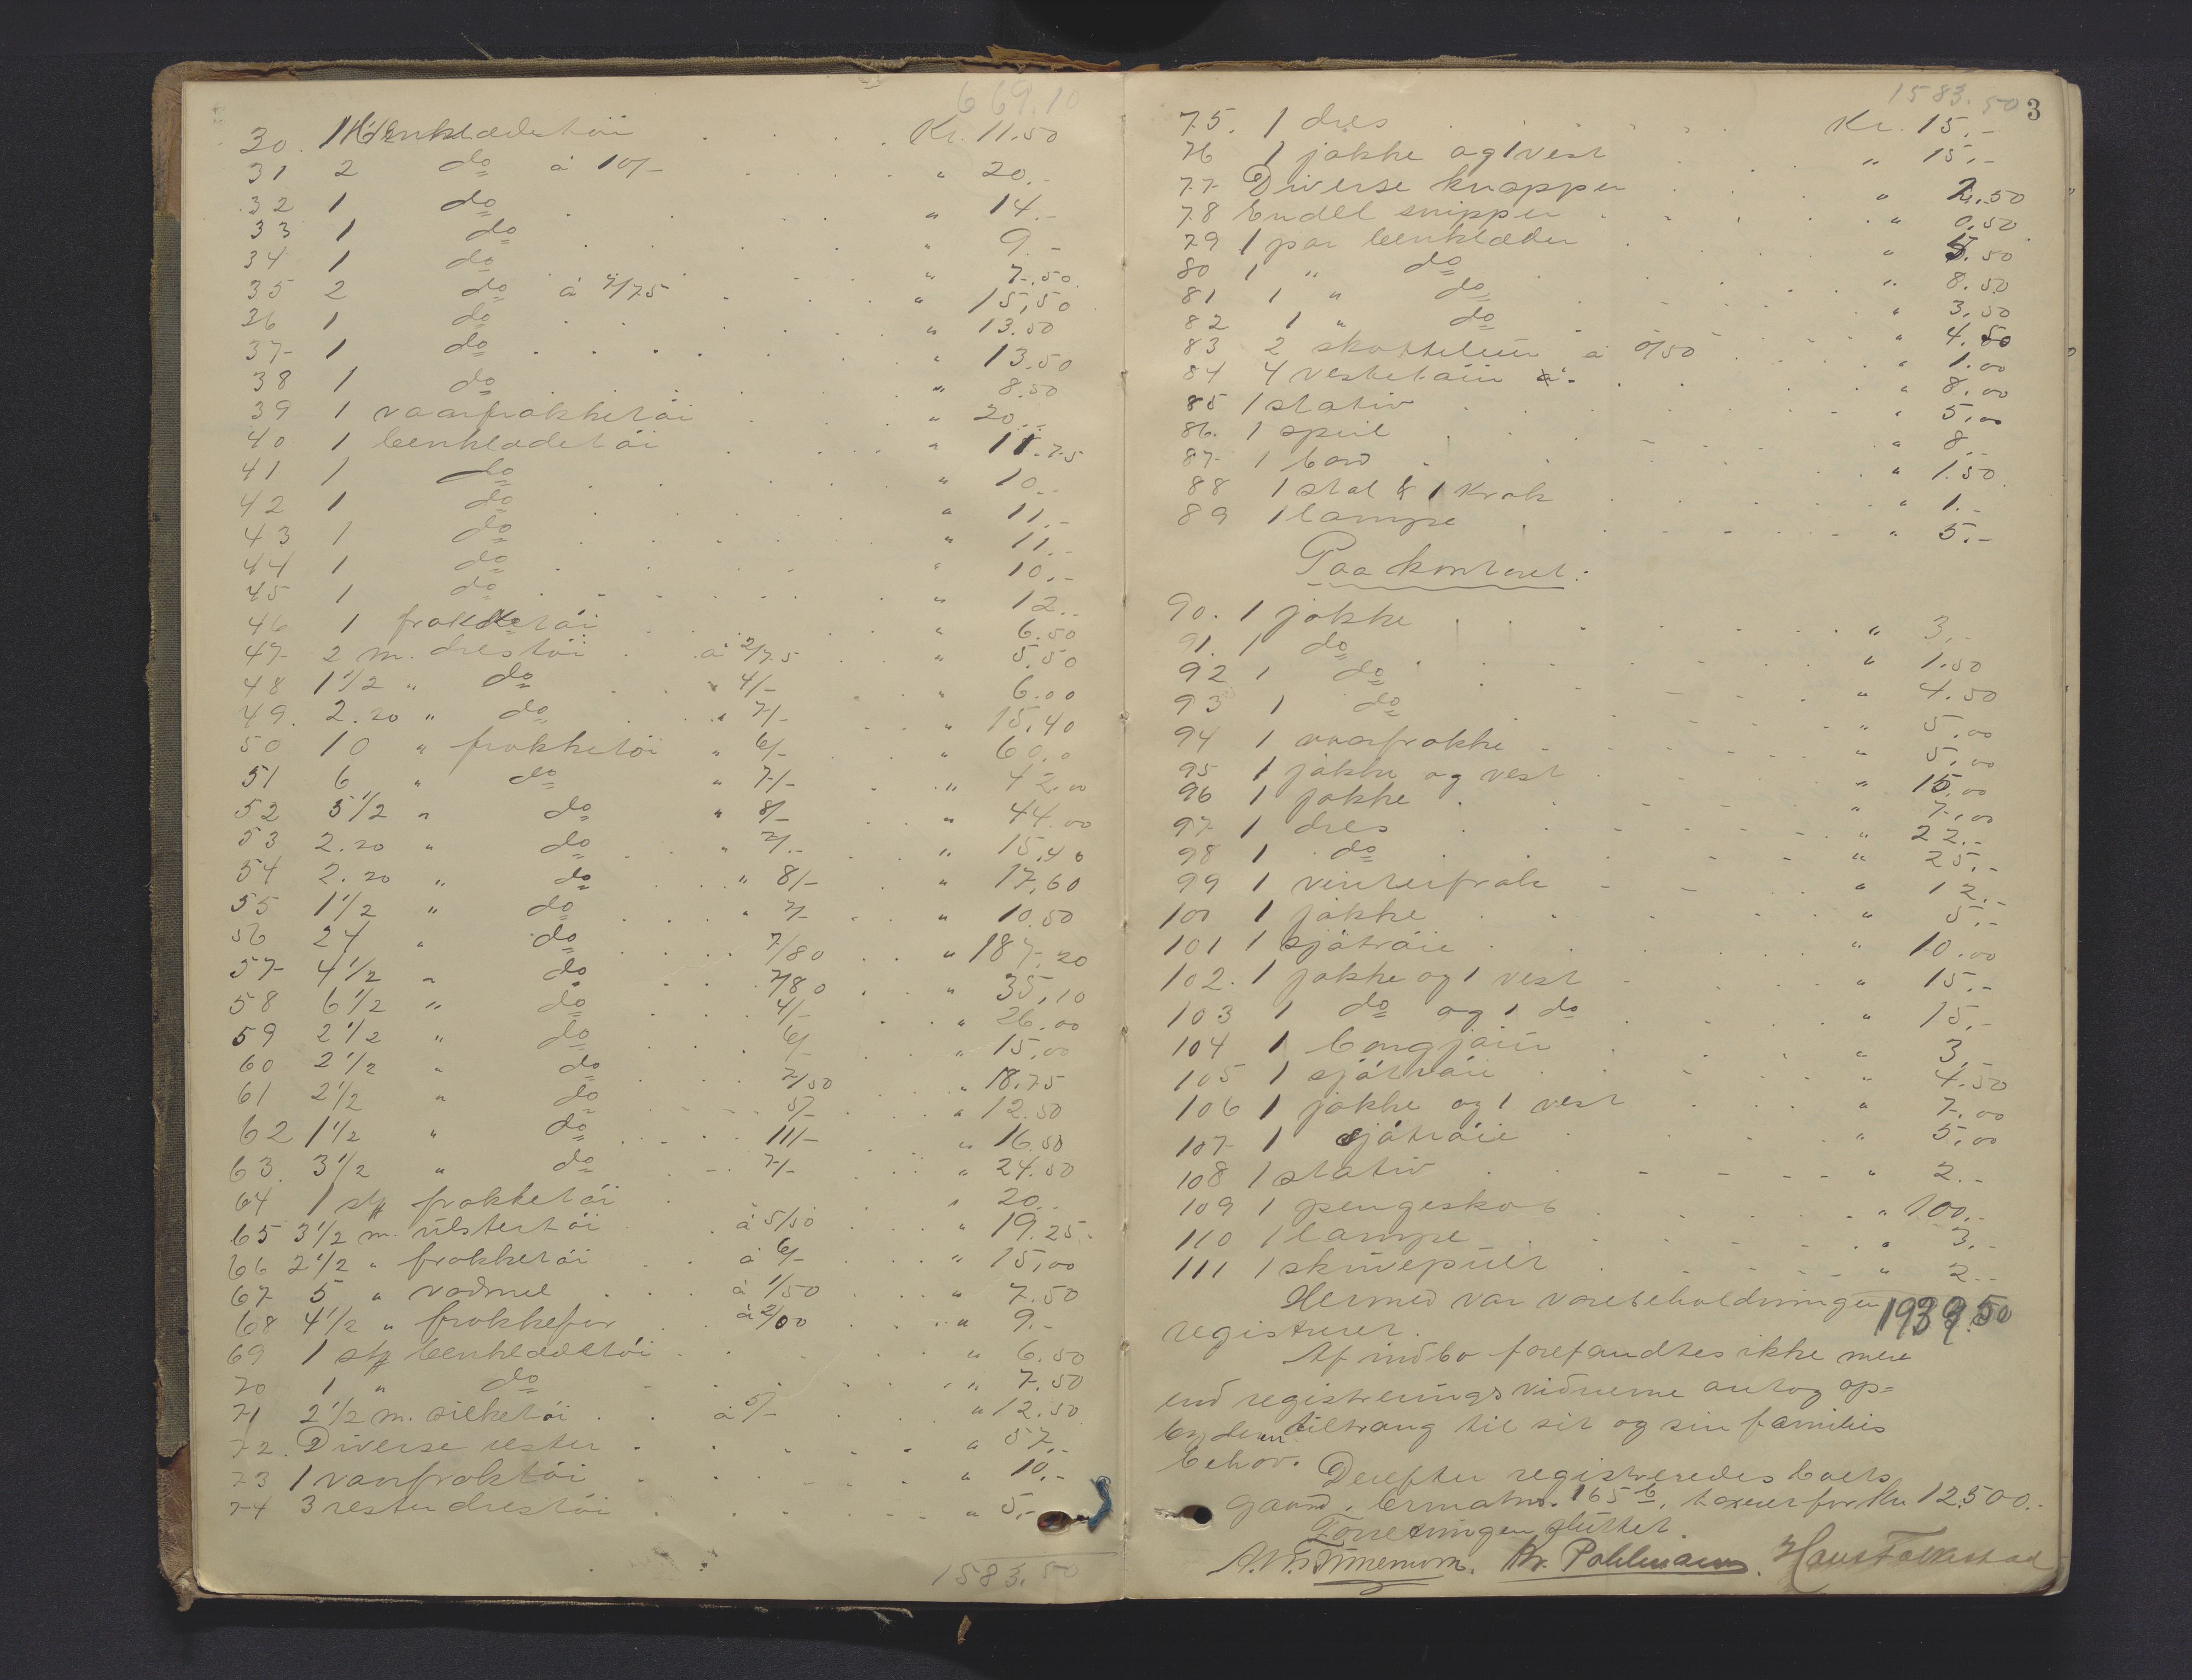 669.10
30. 1 benklædetöi . . . Kr. 11.50
31 2 do à 10/- . . . " 20.-
32 1 do . . . " 14.-
33 1 do . . . " 9.-
34 1 do . . . " 7.50
35 2 do à 7/75 . . . " 15.50
36 1 do . . . " 13.50
37 1 do . . . " 13.50
38 1 do . . . " 8.50
39 1 vaarfrakketöi . . . " 20.-
40 1 benklædetöi . . . " 11.75
41 1 do . . . " 10.-
42 1 do . . . " 11.-
43 1 do . . . " 11.-
44 1 do . . . " 10.-
45 1 do . . . " 12.-
46 1 frakketöi . . . " 6.50
47 2 m. drestöi . à 2/75 . . " 5.50
48 1 1/2 " do . . " 4/- . . " 6.00
49. 2.20 " do . . " 7/- . . " 15.40
50 10 " frakketöi " 6/- . . " 60.0
51 6 " do " 7/- . . " 42.00
52 5 1/2 " do " 8/- . . " 44.00
53 2.20 " do . . " 7/- . . " 15.40
54 2.20 " do . . " 8/- . " 17.60
55 1 1/2 " do . . . " 7/- . . " 10.50
56 24 " do . . . 7/80 . . " 187.20
57 4 1/2 " do . . . 7/80 . . " 35.10
58 6 1/2 " do . . . 4/- . . " 26.00
59 2 1/2 " do . . . 6/- . . " 15.00
60 2 1/2 " do . . . 7/50 . . " 18.75
61 2 1/2 " do . . . 5/- . . " 12.50
62 1 1/2 " do . . . 11/- . . " 16.50
63. 3 1/2 " do . . . 7/- . . " 24.50
64 1 stk frakketöi . . . " 20.-
65 3 1/2 m. ulstertöi . à 5/50 . . " 19.25
66 2 1/2 " frakketöi . . à 6/- . . " 15.00
67 5 " vadmel . . . à 1/50 . . " 7.50
68 4 1/2 " frakkefor . . à 2/00 . . " 9.-
69 1 stk benklædetöi . . . " 6.50
70 1 " do . . . " 7.50
71 2 1/2 m. silketöi . . à 5/- . . " 12.50
72. Diverse rester . . . " 57.-
73 1 vaarfraktöi . . . " 10.-
74 3 rester drestöi . . . " 5.-
1583.50
1583.50 3
75. 1 dres . . . Kr. 15.-
76 1 jakke og 1 vest . . . " 15.-
77 Diverse knapper . . . " 2.50
78 Endel snipper . . . " 0.50
79 1 par benklæder . . . " 5.50
80 1 " do . . . " 8.50
81 1 " do . . . " 3.50
82 1 " do . . . " 4.50
83 2 skottelüer à 0/50 . . . " 1.00
84 4 vestetöier . . . " 8.00
85 1 stativ . . . " 5.00
86. 1 speil . . . " 8.-
87 1 bord . . . " 1.50
88 1 stol & 1 krak . . . " 1.-
89 1 lampe . . . " 5.-
Paa kontoret:
90. 1 jakke . . . " 3.-
91. 1 do . . . " 1.50
92 1 do . . . " 4.50
93 1 do . . . " 5.00
94 1 vaarfrakke . . . " 5.00
95 1 jakke og vest . . . " 15.00
96 1 jakke . . . " 7.00
97 1 dres . . . " 22.-
98 1 do . . . " 25.-
99 1 vinterfrak . . . " 12.-
100 1 jakke . . . " 5.-
101 1 sjötröie . . . " 10.00
102. 1 jakke og 1 vest . . . " 15.-
103 1 do og 1 do . . . " 15.-
104 1 . . . " 3.-
105 1 sjötröie . . . " 4.50
106 1 jakke og 1 vest . . . " 7.00
107 1 sjötröie . . . " 5.00
108 1 stativ . . . " 2.-
109 1 pengeskab . . . " 100.-
110 1 lampe . . . " 3.-
111 1 skrivepült . . . " 2.-
Hermed var varebeholdningen 1939.50
registreret.
Af indbo forefandtes ikke mere
end registreringsvidnerne antog op=
byderen tiltrang til sit og sin families
behov.
Derefter registreredes boets
gaard. brmatno. 165 b, taxeret for Kr. 12.500.-
Forretningen sluttet.
Kr. Pohlmann. Hans Falkestad